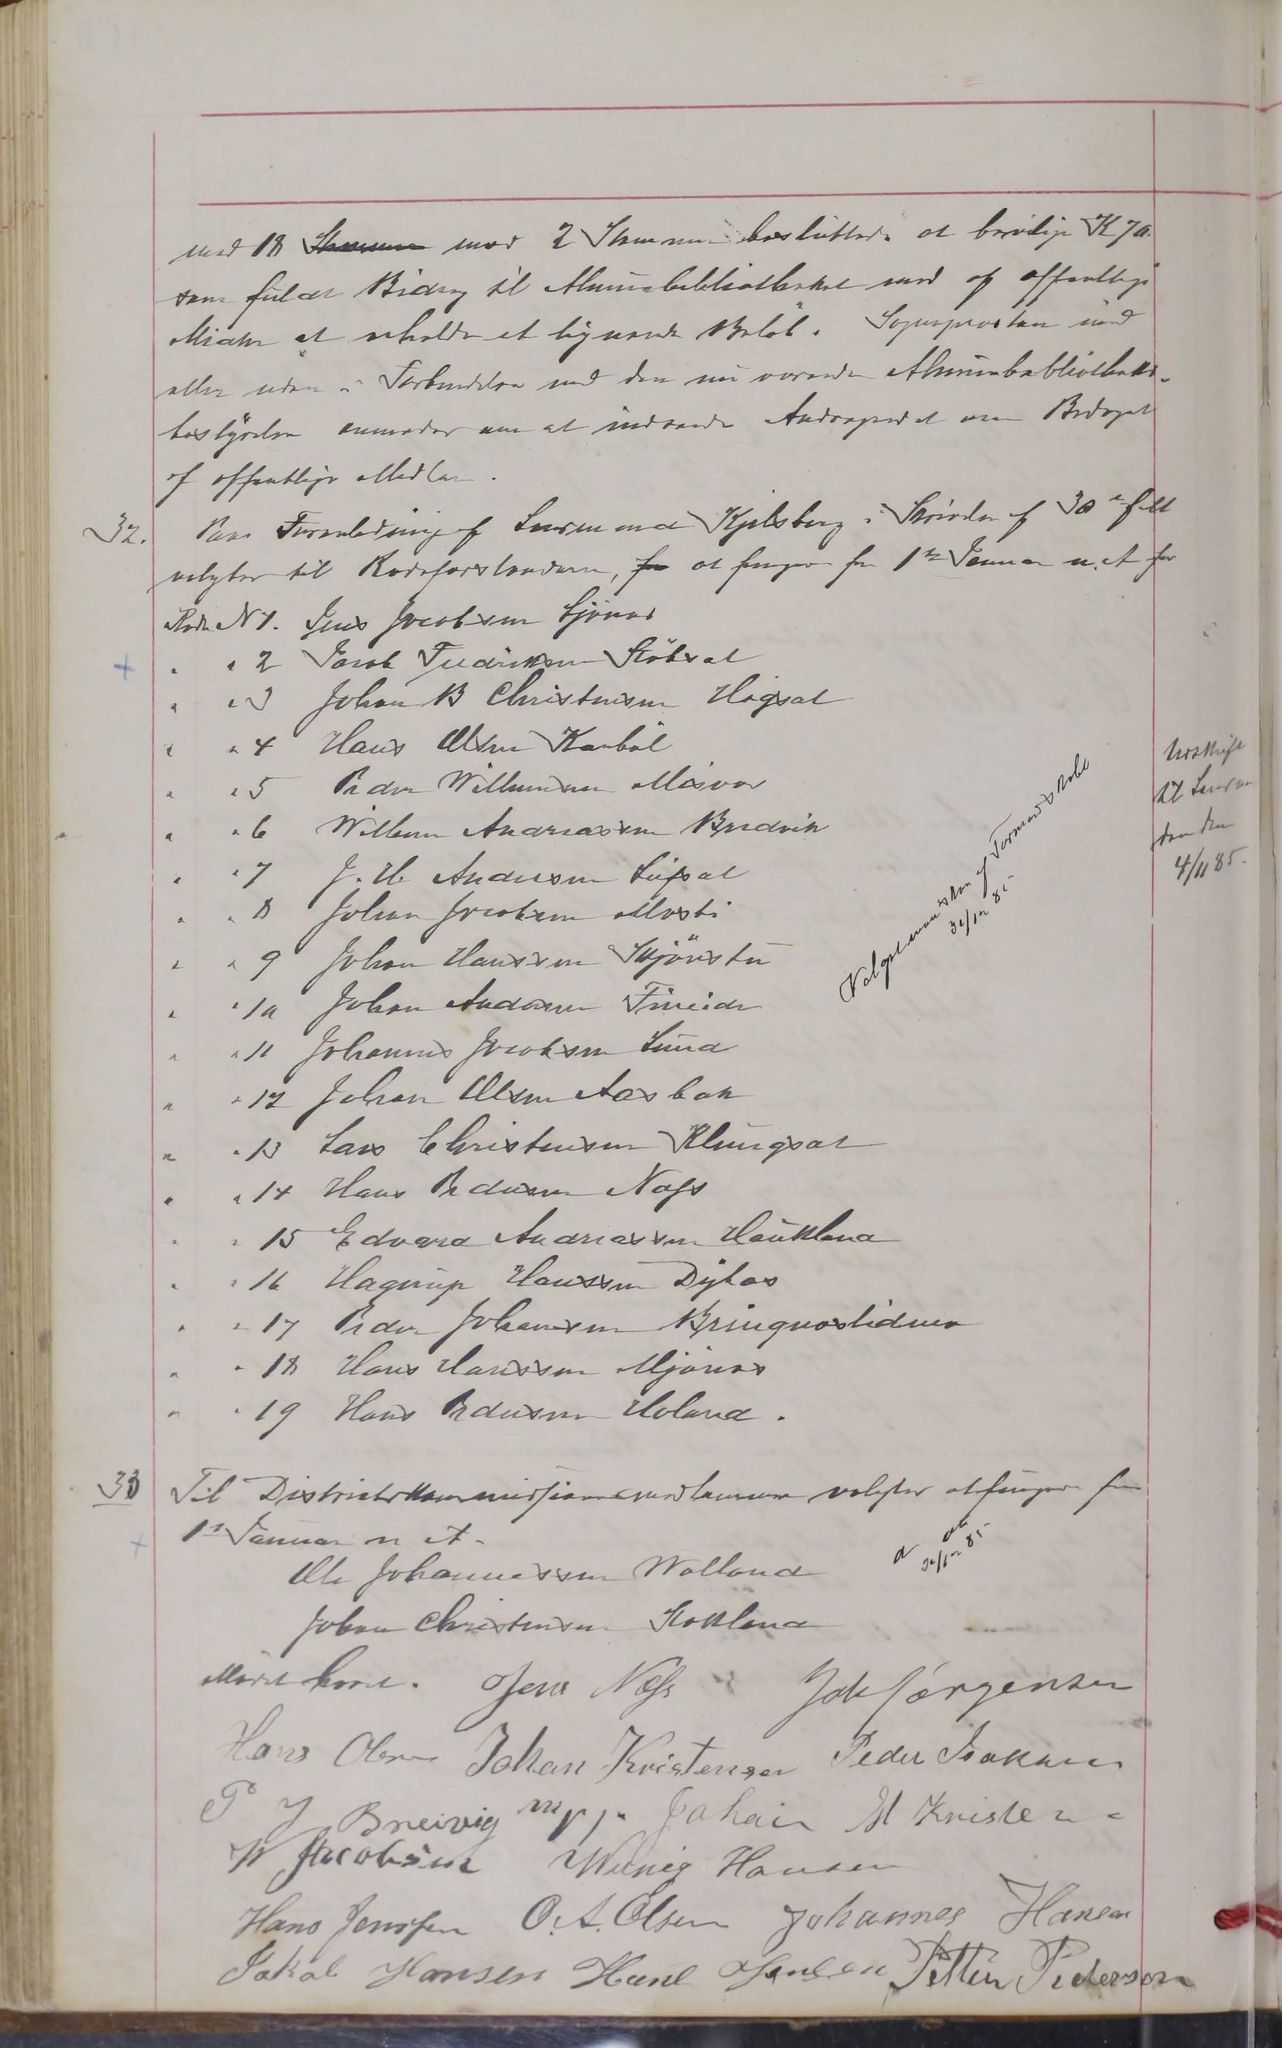 med 18 mod 2 Stemmer besluttede at bevilge K 70
som fuldt Bidrag til Almuebibliotheket med af offentlige
Midler at erholde et lignende Beløb. Sogneprosten med
eller uden i Forbindelse med den nu værende Almuebibliotheks-
bestyrelse anmodes om at indsende Andragendet om Bidraget
af offentlige Midler.
32. Paa Foranledning af Lensmand Kjelsberg i Skrivelse af 30 f. M.
valgtes til Rodeforstandere, at fungere fra 1ste Januar n. A. for
Rode No 1. Jens Jacobsen
" " 2 Jacob Fredriksen Stöbsat
" " 3 Johan B Christensen Högsat
" " 4 Hans Olsen Karböl
" " 5 Peder Willumsen Misvær
" " 6 Willum Andreassen Bredvik
" " 7 J. H. Andersen
" " 8 Johan Jacobsen Mosti
" " 9 Johan Hanssen Skjönstu
" " 10 Johan Andersen Fineide
" " 11 Johannes Jacobsen Lund
" " 12 Johan Olsen Aasbak
" " 13 Lars Christensen Klungsat
" " 14 Hans Pedersen Næss
" " 15 Edvard Andreassen Haukland
" " 16 Hagerup Hanssen Dybas
" " 17 Peder Johansen
" " 18 Hans Hanssen Mjönes
" " 19 Hans Pedersen Holand.
Valget af Formandskabet
30/12 85
Udskrift
til Lensman
den
4/11 85.
33 Til Districtskommissionsmedlemmer valgtes at fungere fra
1ste Januar n A.
30/12 85
Ole Johannessen Wolland
Johan Christensen Stokland
Mödet hævet. Jens Næss Jak Jørgensen
Hans Olsen Johan Kristensen Peder Isaksen
P J Breivig Johan M Kristen
Jacobsen Hansen
Hans Jenssen O. A. Olsen Johannes Hansen
Jakob Hansen Petter Pedersen